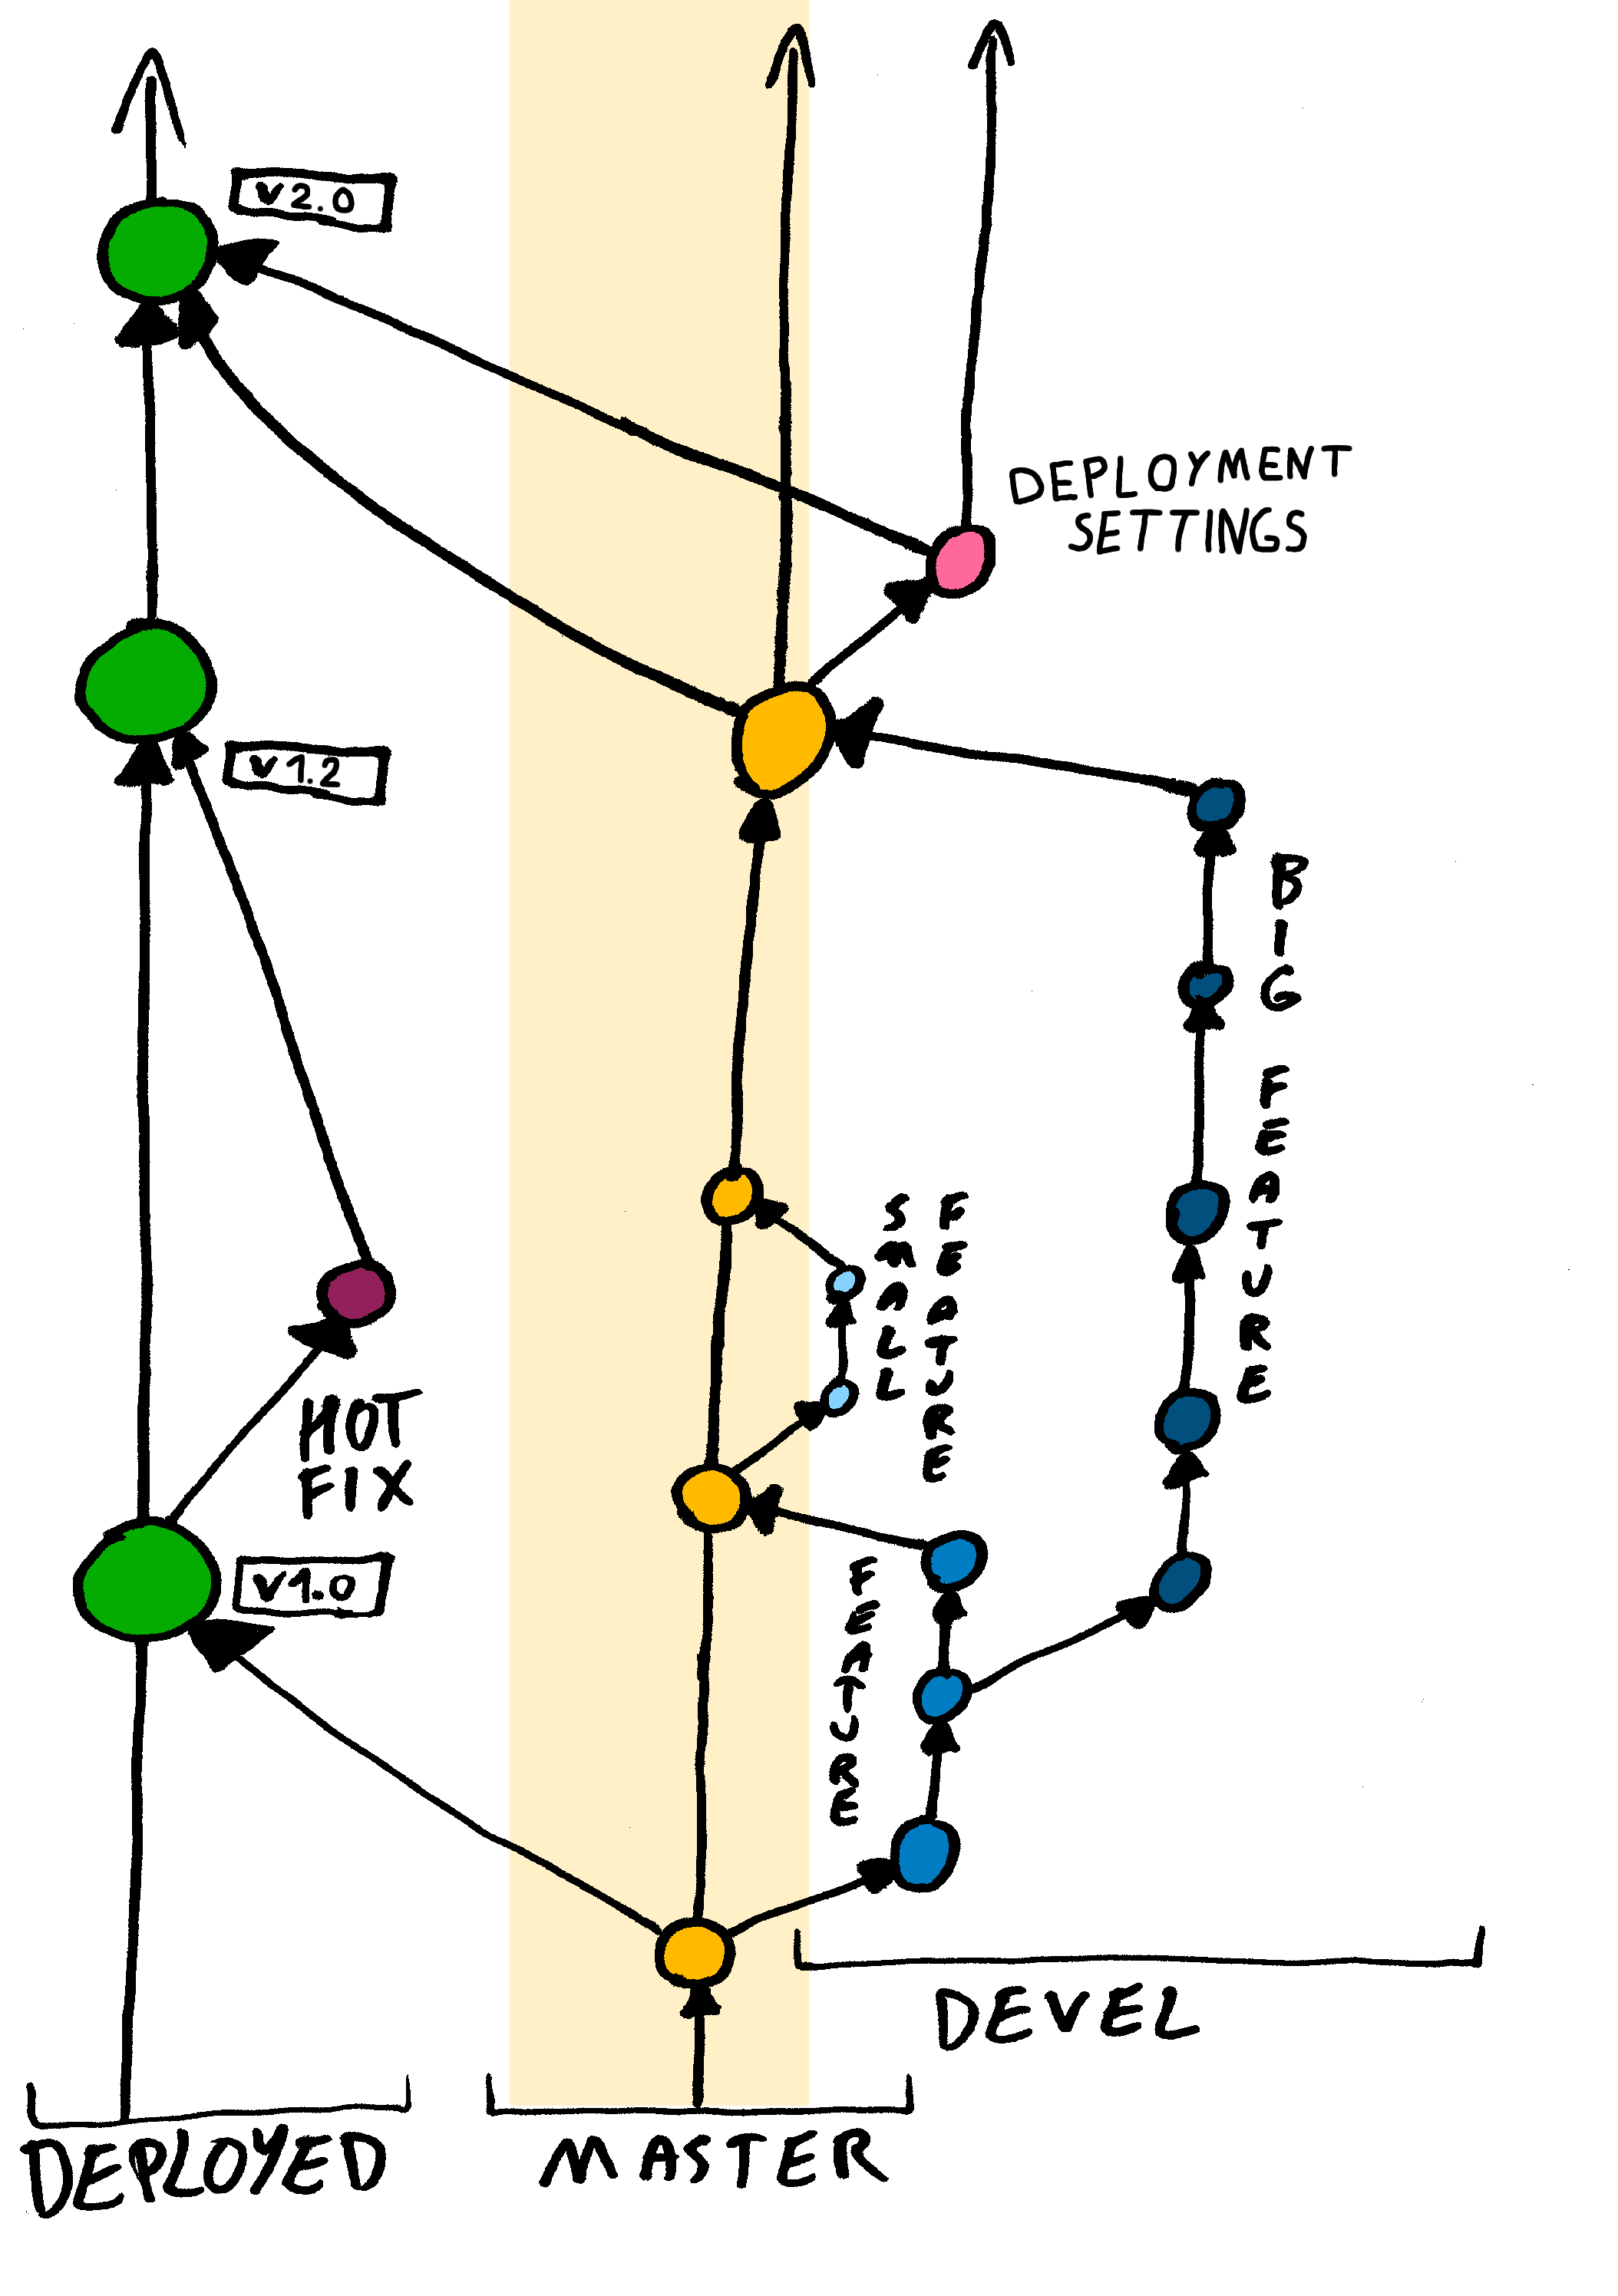 v2.0
DEPLOYMENT
SETTINGS
v1.2
BIG FEATURE
SMALL
FEATURE
HOT
FIX
v1.0
FEATURE
DEVEL
DEPLOYED
MASTER